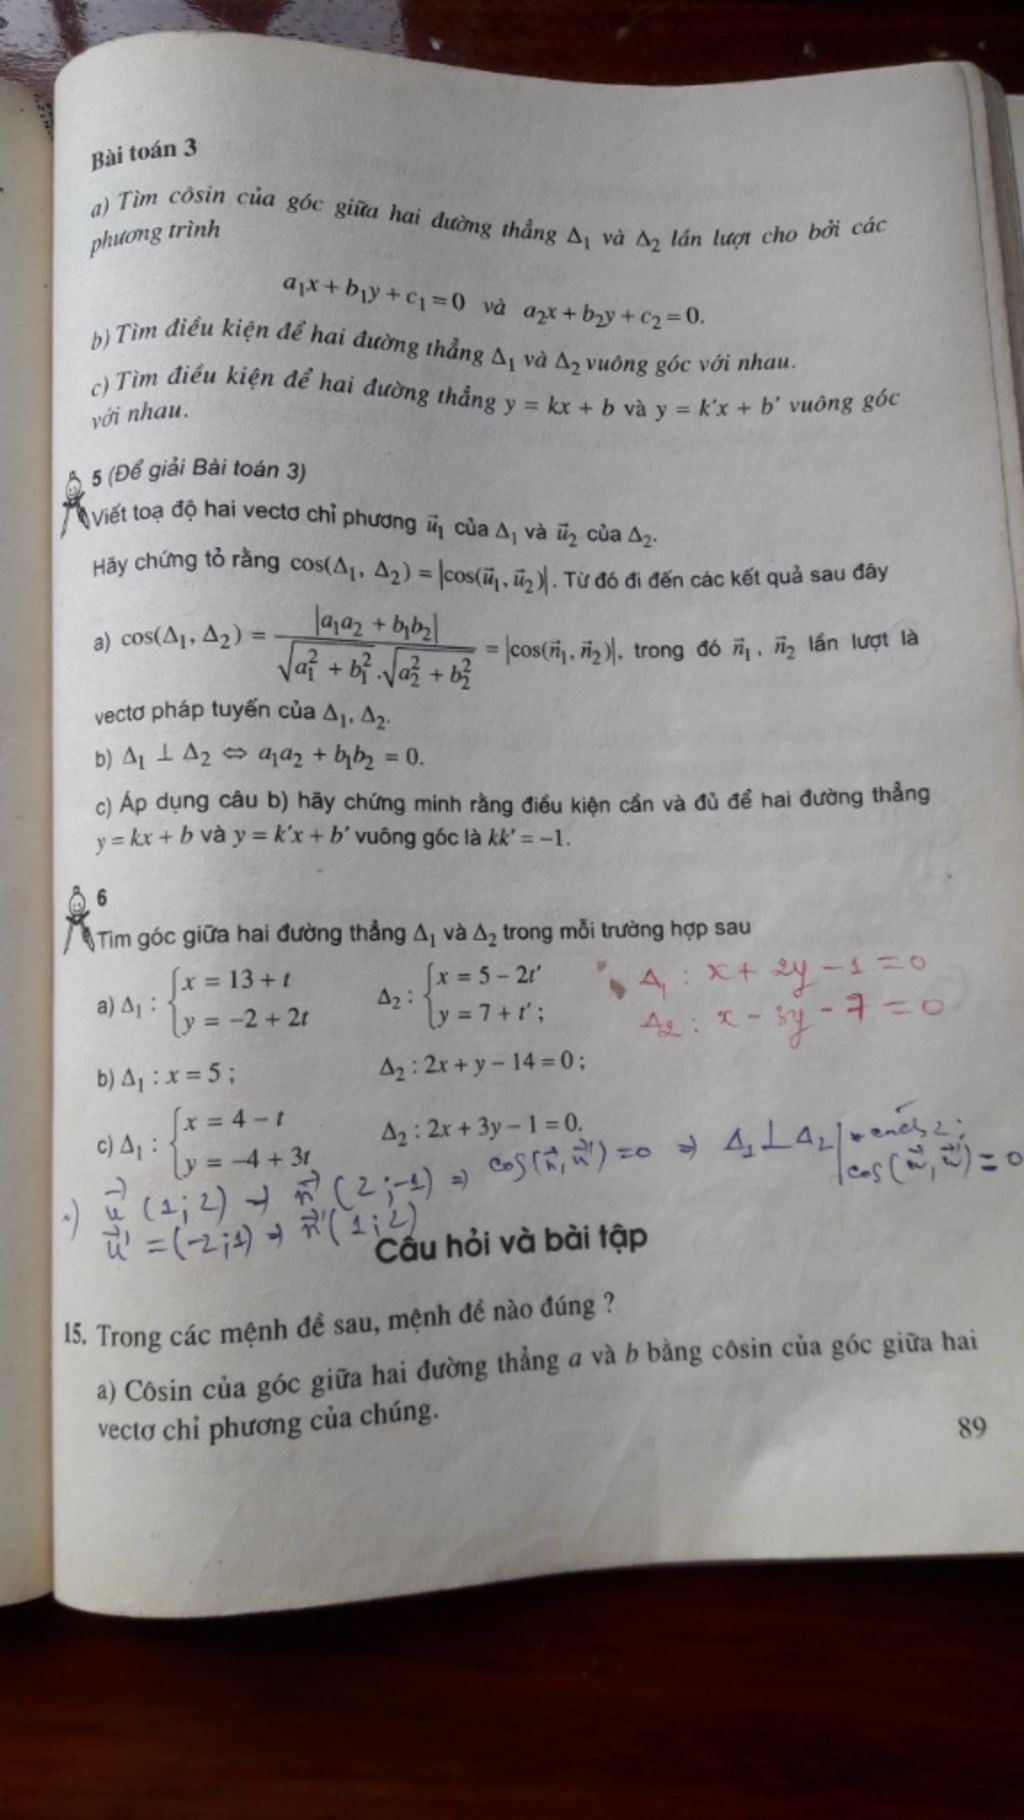 Bài toán 3
a) Tìm côsin của góc giữa hai đường thẳng Δ₁ và Δ₂ lần lượt cho bởi các
phương trình
a₁x + b₁y + c₁ = 0 và a₂x + b₂y + c₂ = 0.
b) Tìm điều kiện để hai đường thẳng Δ₁ và Δ₂ vuông góc với nhau.
c) Tìm điều kiện để hai đường thẳng y = kx + b và y = k'x + b' vuông góc
với nhau.
5 (Để giải Bài toán 3)
Viết toạ độ hai vectơ chỉ phương u⃗₁ của Δ₁ và u⃗₂ của Δ₂.
Hãy chứng tỏ rằng cos(Δ₁, Δ₂) = |cos(u⃗₁, u⃗₂)|. Từ đó đi đến các kết quả sau đây
a) cos(Δ₁, Δ₂) = |a₁a₂ + b₁b₂| / √(a₁² + b₁²).√(a₂² + b₂²) = |cos(n⃗₁, n⃗₂)|, trong đó n⃗₁, n⃗₂ lần lượt là
vectơ pháp tuyến của Δ₁, Δ₂.
b) Δ₁ ⊥ Δ₂ ⇔ a₁a₂ + b₁b₂ = 0.
c) Áp dụng câu b) hãy chứng minh rằng điều kiện cần và đủ để hai đường thẳng
y = kx + b và y = k'x + b' vuông góc là kk' = –1.
6
Tìm góc giữa hai đường thẳng Δ₁ và Δ₂ trong mỗi trường hợp sau
a) Δ₁ : { x = 13 + t
y = –2 + 2t
Δ₂ : { x = 5 – 2t'
y = 7 + t' ;
Δ₁ : x + 2y – 1 = 0
Δ₂ : x – 3y – 7 = 0
b) Δ₁ : x = 5 ; Δ₂ : 2x + y – 14 = 0 ;
c) Δ₁ : { x = 4 – t
y = –4 + 3t
Δ₂ : 2x + 3y – 1 = 0.
u⃗ (1; 2) → n⃗ (2; -1) ⇒ cos(n⃗, n⃗') = 0 ⇒ Δ₁ ⊥ Δ₂
u⃗' = (-2; 1) ⇒ n⃗' (1; 2)
cách 2:
cos(u⃗, u⃗') = 0
Câu hỏi và bài tập
15. Trong các mệnh đề sau, mệnh đề nào đúng ?
a) Côsin của góc giữa hai đường thẳng a và b bằng côsin của góc giữa hai
vectơ chỉ phương của chúng.
89